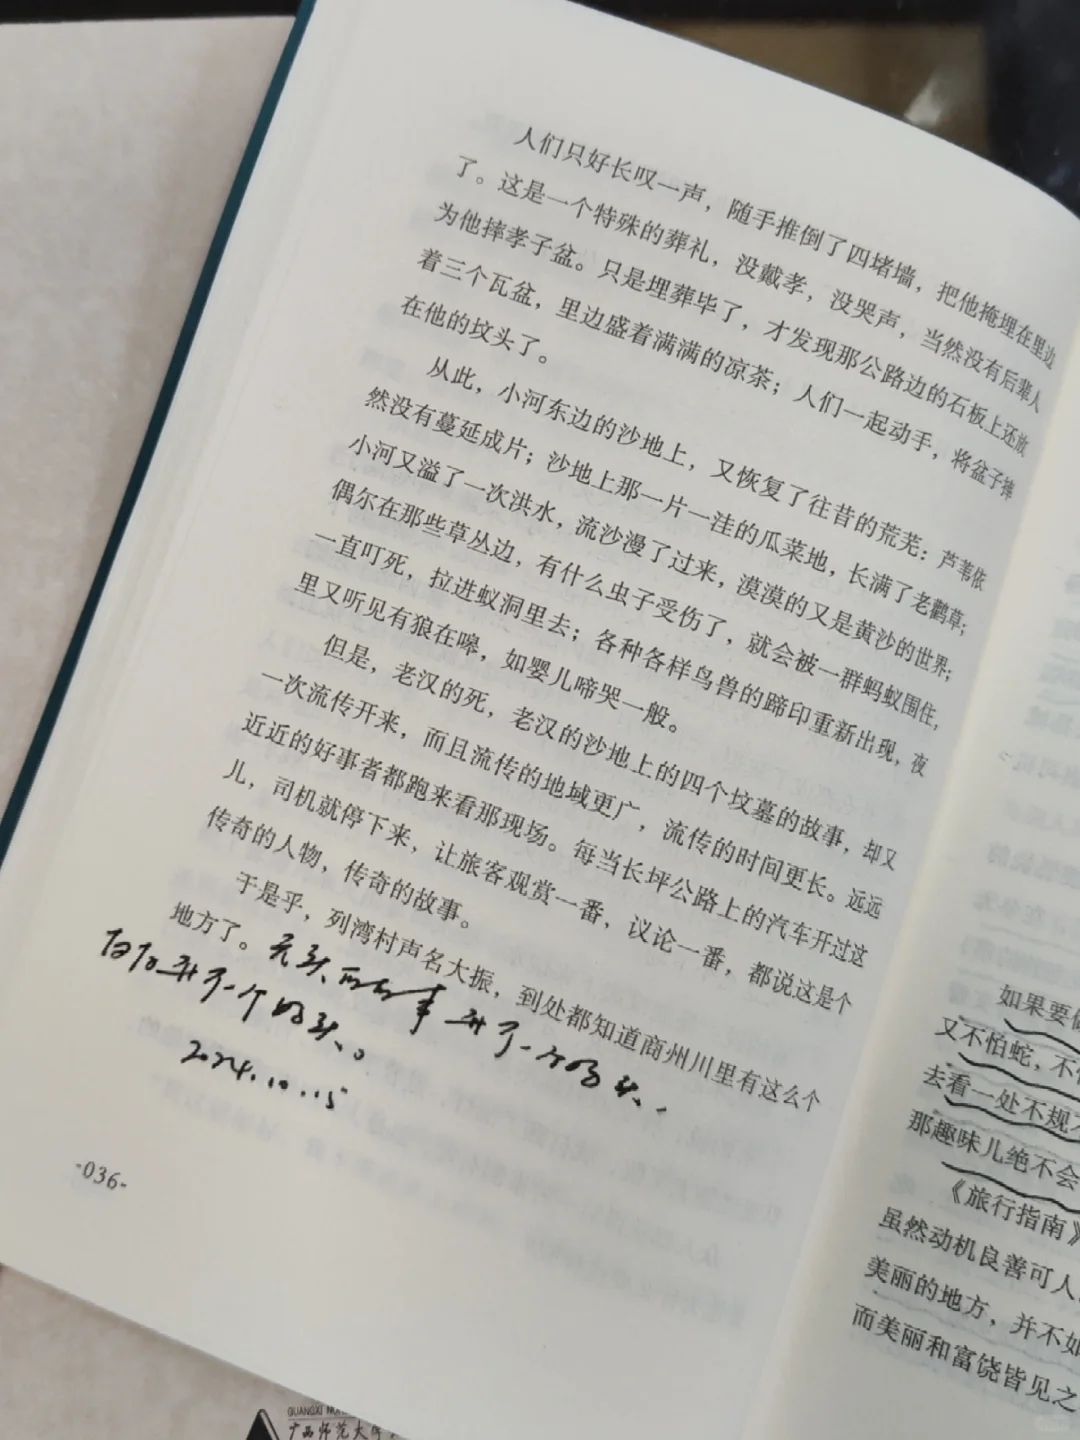 人们只好长叹一声，随手推倒了四堵墙，把他掩埋在里边
了。这是一个特殊的葬礼，没戴孝，没哭声，当然没有后辈人
为他摔孝子盆。只是埋葬毕了，才发现那公路边的石板上还放
着三个瓦盆，里边盛着满满的凉茶；人们一起动手，将盆子摔
在他的坟头了。
从此，小河东边的沙地上，又恢复了往昔的荒芜：芦苇依
然没有蔓延成片；沙地上那一片一洼的瓜菜地，长满了老鹳草；
小河又溢了一次洪水，流沙漫了过来，漠漠的又是黄沙的世界；
偶尔在那些草丛边，有什么虫子受伤了，就会被一群蚂蚁围住，
一直叮死，拉进蚁洞里去；各种各样鸟兽的蹄印重新出现，夜
里又听见有狼在嗥，如婴儿啼哭一般。
但是，老汉的死，老汉的沙地上的四个坟墓的故事，却又
一次流传开来，而且流传的地域更广，流传的时间更长。远远
近近的好事者都跑来看那现场。每当长坪公路上的汽车开过这
儿，司机就停下来，让旅客观赏一番，议论一番，都说这是个
传奇的人物，传奇的故事。
于是乎，列湾村声名大振，到处都知道商州川里有这么个
地方了。
开了一个好头。
2024.10.15
-036-
如果要
又不怕蛇，不
去看一处不规
那趣味儿绝不会
《旅行指南》
虽然动机良善可人
美丽的地方，并不如
而美丽和富饶皆见之
GUANGXI NOR
广西师范大学